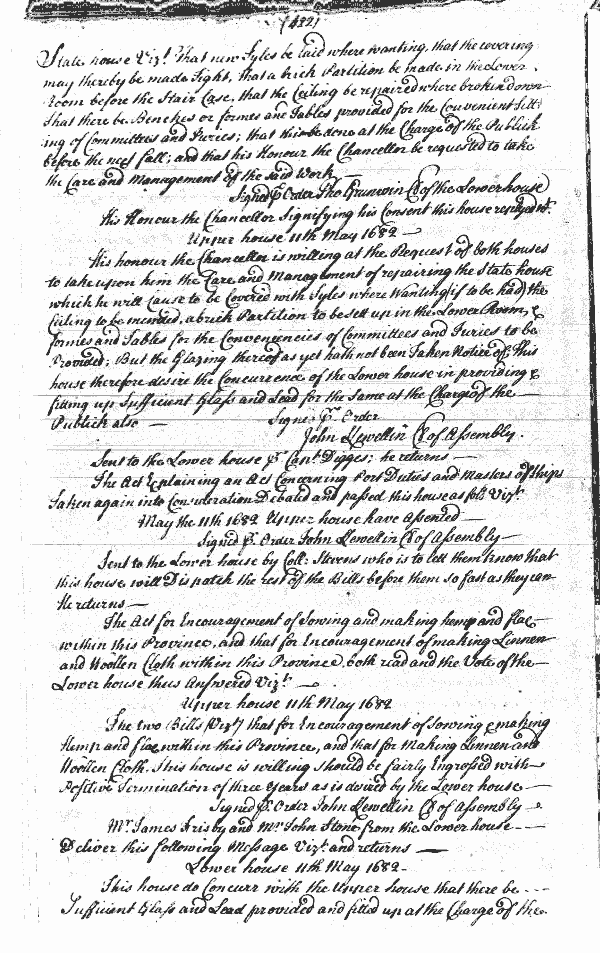 (432)
State house Vizt. That new Tyles be laid where wanting, that the covering
may thereby be made Tight, that a brick Partition be made in the Lower
Room before the Stair Case, that the Ceiling be repaired where broken down
That there be Benches or formes and Tables provided for the Convenient sitt
ing of Committees and Juries; that this be done at the Charge of the Publick
before the next fall; and that his Honour the Chancellor be requested to take
the Care and Management of the said Work —
Signed p. Order Tho Grunwin Cl of the Lower house
His Honour the Chancellor Signifying his Consent this house replyed vt.
Upper house 11th May 1682 —
His honour the Chancellor is willing at the Request of both houses
to take upon him the Care and Management of repairing the State house
which he will Cause to be Covered with Tyles where Wanting (if to be had) the
Ceiling to be mended, a brick Partition to be sett up in the Lower Room, &
formes and Tables for the Conveniencies of Committees and Juries to be
Provided; But the Glazing thereof as yet hath not been Taken Notice of, This
house therefore desire the Concurrence of the Lower house in providing &
fitting up Sufficient Glass and Lead for the Same at the Charge of the
Publick also — Signed p. Order
John Llewellin Cl of Assembly.
Sent to the Lower house p. Capt. Digges; he returns —
The Act Explaining an Act Concerning Port Duties and Masters of Ships
Taken again into Consideration Debated and passed this house as foll. Vizt.
May the 11th 1682 Upper house have Assented —
Signed p. Order John Llewellin Cl of Assembly —
Sent to the Lower house by Coll: Stevens who is to let them know that
this house will Dispatch the rest of the Bills before them so fast as they can
He returns —
The Act for Encouragement of Sowing and making hemp and flax
within this Province, and that for Encouragement of making Linnen
and Woollen Cloth within this Province both read and the Vote of the
Lower house thus Answered Vizt. —
Upper house 11th May 1682
The two Bills (Vizt) that for Encouragement of Sowing & making
Hemp and flax within this Province, and that for Making Linnen and
Woollen Cloth. This house is willing should be fairly Engrossed with
Positive Termination of three Years as is desired by the Lower house —
Signed p. Order John Llewellin Cl of Assembly —
Mr. James Frisby and Mr. John Stone from the Lower house —
Deliver this following Message Vizt. and returns —
Lower house 11th May 1682 -
This house do Concurr with the Upper house that there be - - -
Sufficient Glass and Lead provided and fitted up at the Charge of the